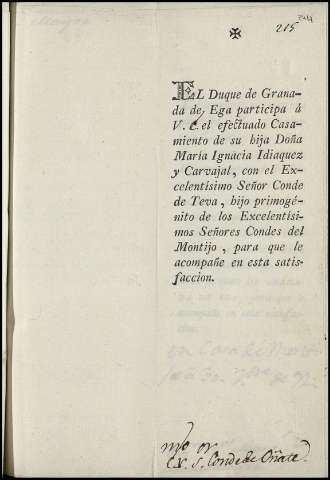 215
EL Duque de Grana-
da de Ega participa á
V. E. el efectuado Casa-
miento de su hija Doña
María Ignacia Idiaquez
y Carvajal, con el Ex-
celentísimo Señor Conde
de Teva, hijo primogé-
nito de los Excelentísi-
mos Señores Condes del
Montijo, para que le
acompañe en esta satis-
faccion.
S. Conde de Oñate